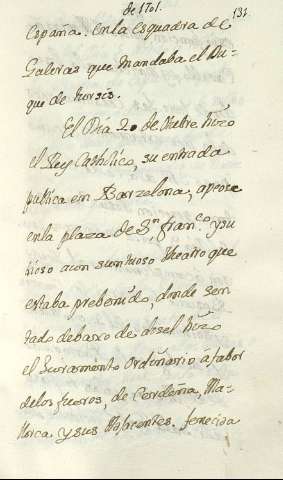 de 1701.
131.
España. en la esquadra de
Galeras que mandaba el Du-
que de tursis.
El Dia 20 de Nubre hizo
el Rey Catholico, su entrada
publica em Barzelona, apeose
enla plaza de Sn. franco. y su
bioso aun sumtuoso theatro que
estaba prebenido, donde sen
tado debaxo de dosel hizo
el Juramento Ordinario á fabor
delos fueros, de Cerdeña, Ma-
llorca. y sus Adjacentes. fenecida